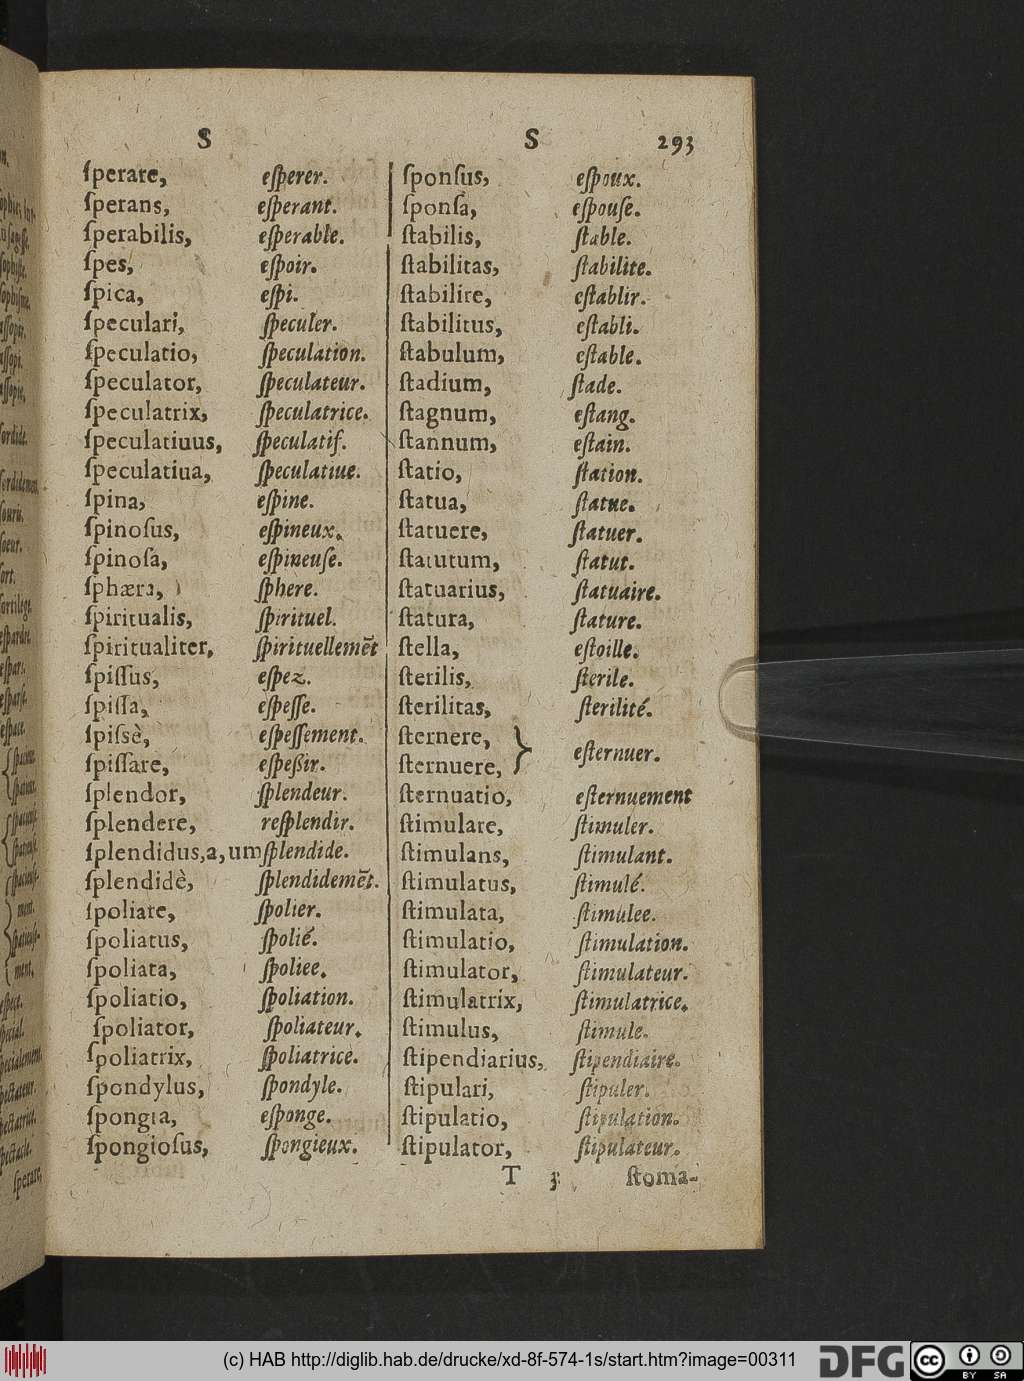 S S 293
ſperare, eſperer.
ſperans, eſperant.
ſperabilis, eſperable.
ſpes, eſpoir.
ſpica, eſpi.
ſpeculari, ſpeculer.
ſpeculatio, ſpeculation.
ſpeculator, ſpeculateur.
ſpeculatrix, ſpeculatrice.
ſpeculatiuus, ſpeculatif.
ſpeculatiua, ſpeculatiue.
ſpina, eſpine.
ſpinoſus, eſpineux.
ſpinoſa, eſpineuſe.
ſphæra, ſphere.
ſpiritualis, ſpirituel.
ſpiritualiter, ſpirituellemẽt
ſpiſſus, eſpez.
ſpiſſa, eſpeſſe.
ſpiſsè, eſpeſſement.
ſpiſſare, eſpeßir.
ſplendor, ſplendeur.
ſplendere, reſplendir.
ſplendidus,a,um ſplendide.
ſplendidè, ſplendidemẽt.
ſpoliare, ſpolier.
ſpoliatus, ſpolié.
ſpoliata, ſpoliee.
ſpoliatio, ſpoliation.
ſpoliator, ſpoliateur.
ſpoliatrix, ſpoliatrice.
ſpondylus, ſpondyle.
ſpongia, eſponge.
ſpongioſus, ſpongieux.
ſponſus, eſpoux.
ſponſa, eſpouſe.
ſtabilis, ſtable.
ſtabilitas, ſtabilite.
ſtabilire, eſtablir.
ſtabilitus, eſtabli.
ſtabulum, eſtable.
ſtadium, ſtade.
ſtagnum, eſtang.
ſtannum, eſtain.
ſtatio, ſtation.
ſtatua, ſtatue.
ſtatuere, ſtatuer.
ſtatutum, ſtatut.
ſtatuarius, ſtatuaire.
ſtatura, ſtature.
ſtella, eſtoille.
ſterilis, ſterile.
ſterilitas, ſterilité.
ſternere,
ſternuere, } eſternuer.
ſternuatio, eſternuement
ſtimulare, ſtimuler.
ſtimulans, ſtimulant.
ſtimulatus, ſtimulé.
ſtimulata, ſtimulee.
ſtimulatio, ſtimulation.
ſtimulator, ſtimulateur.
ſtimulatrix, ſtimulatrice.
ſtimulus, ſtimule.
ſtipendiarius, ſtipendiaire.
ſtipulari, ſtipuler.
ſtipulatio, ſtipulation.
ſtipulator, ſtipulateur.
T 3 ſtoma-
(c) HAB http://diglib.hab.de/drucke/xd-8f-574-1s/start.htm?image=00311
DFG cc BY SA